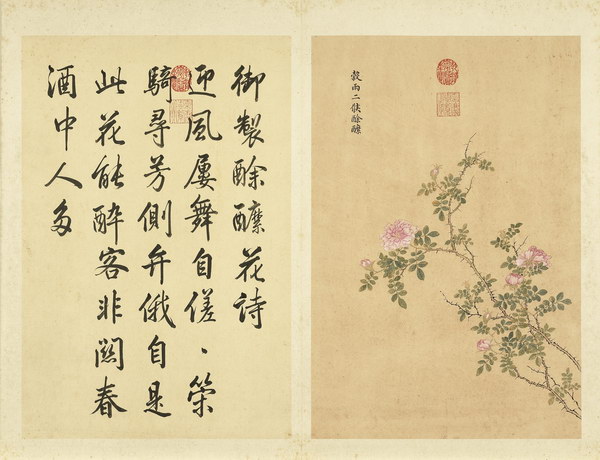 穀雨二候酴醾
御製酴醾花詩
迎風屢舞自傞、策
騎尋芳側弁俄自是
此花能醉客非闗春
酒中人多